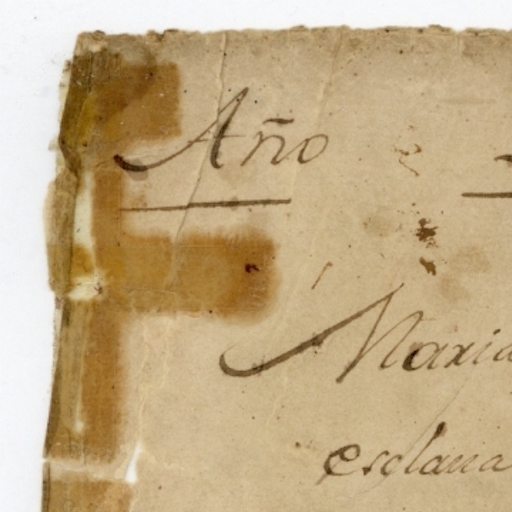 Año
Maria
esclava